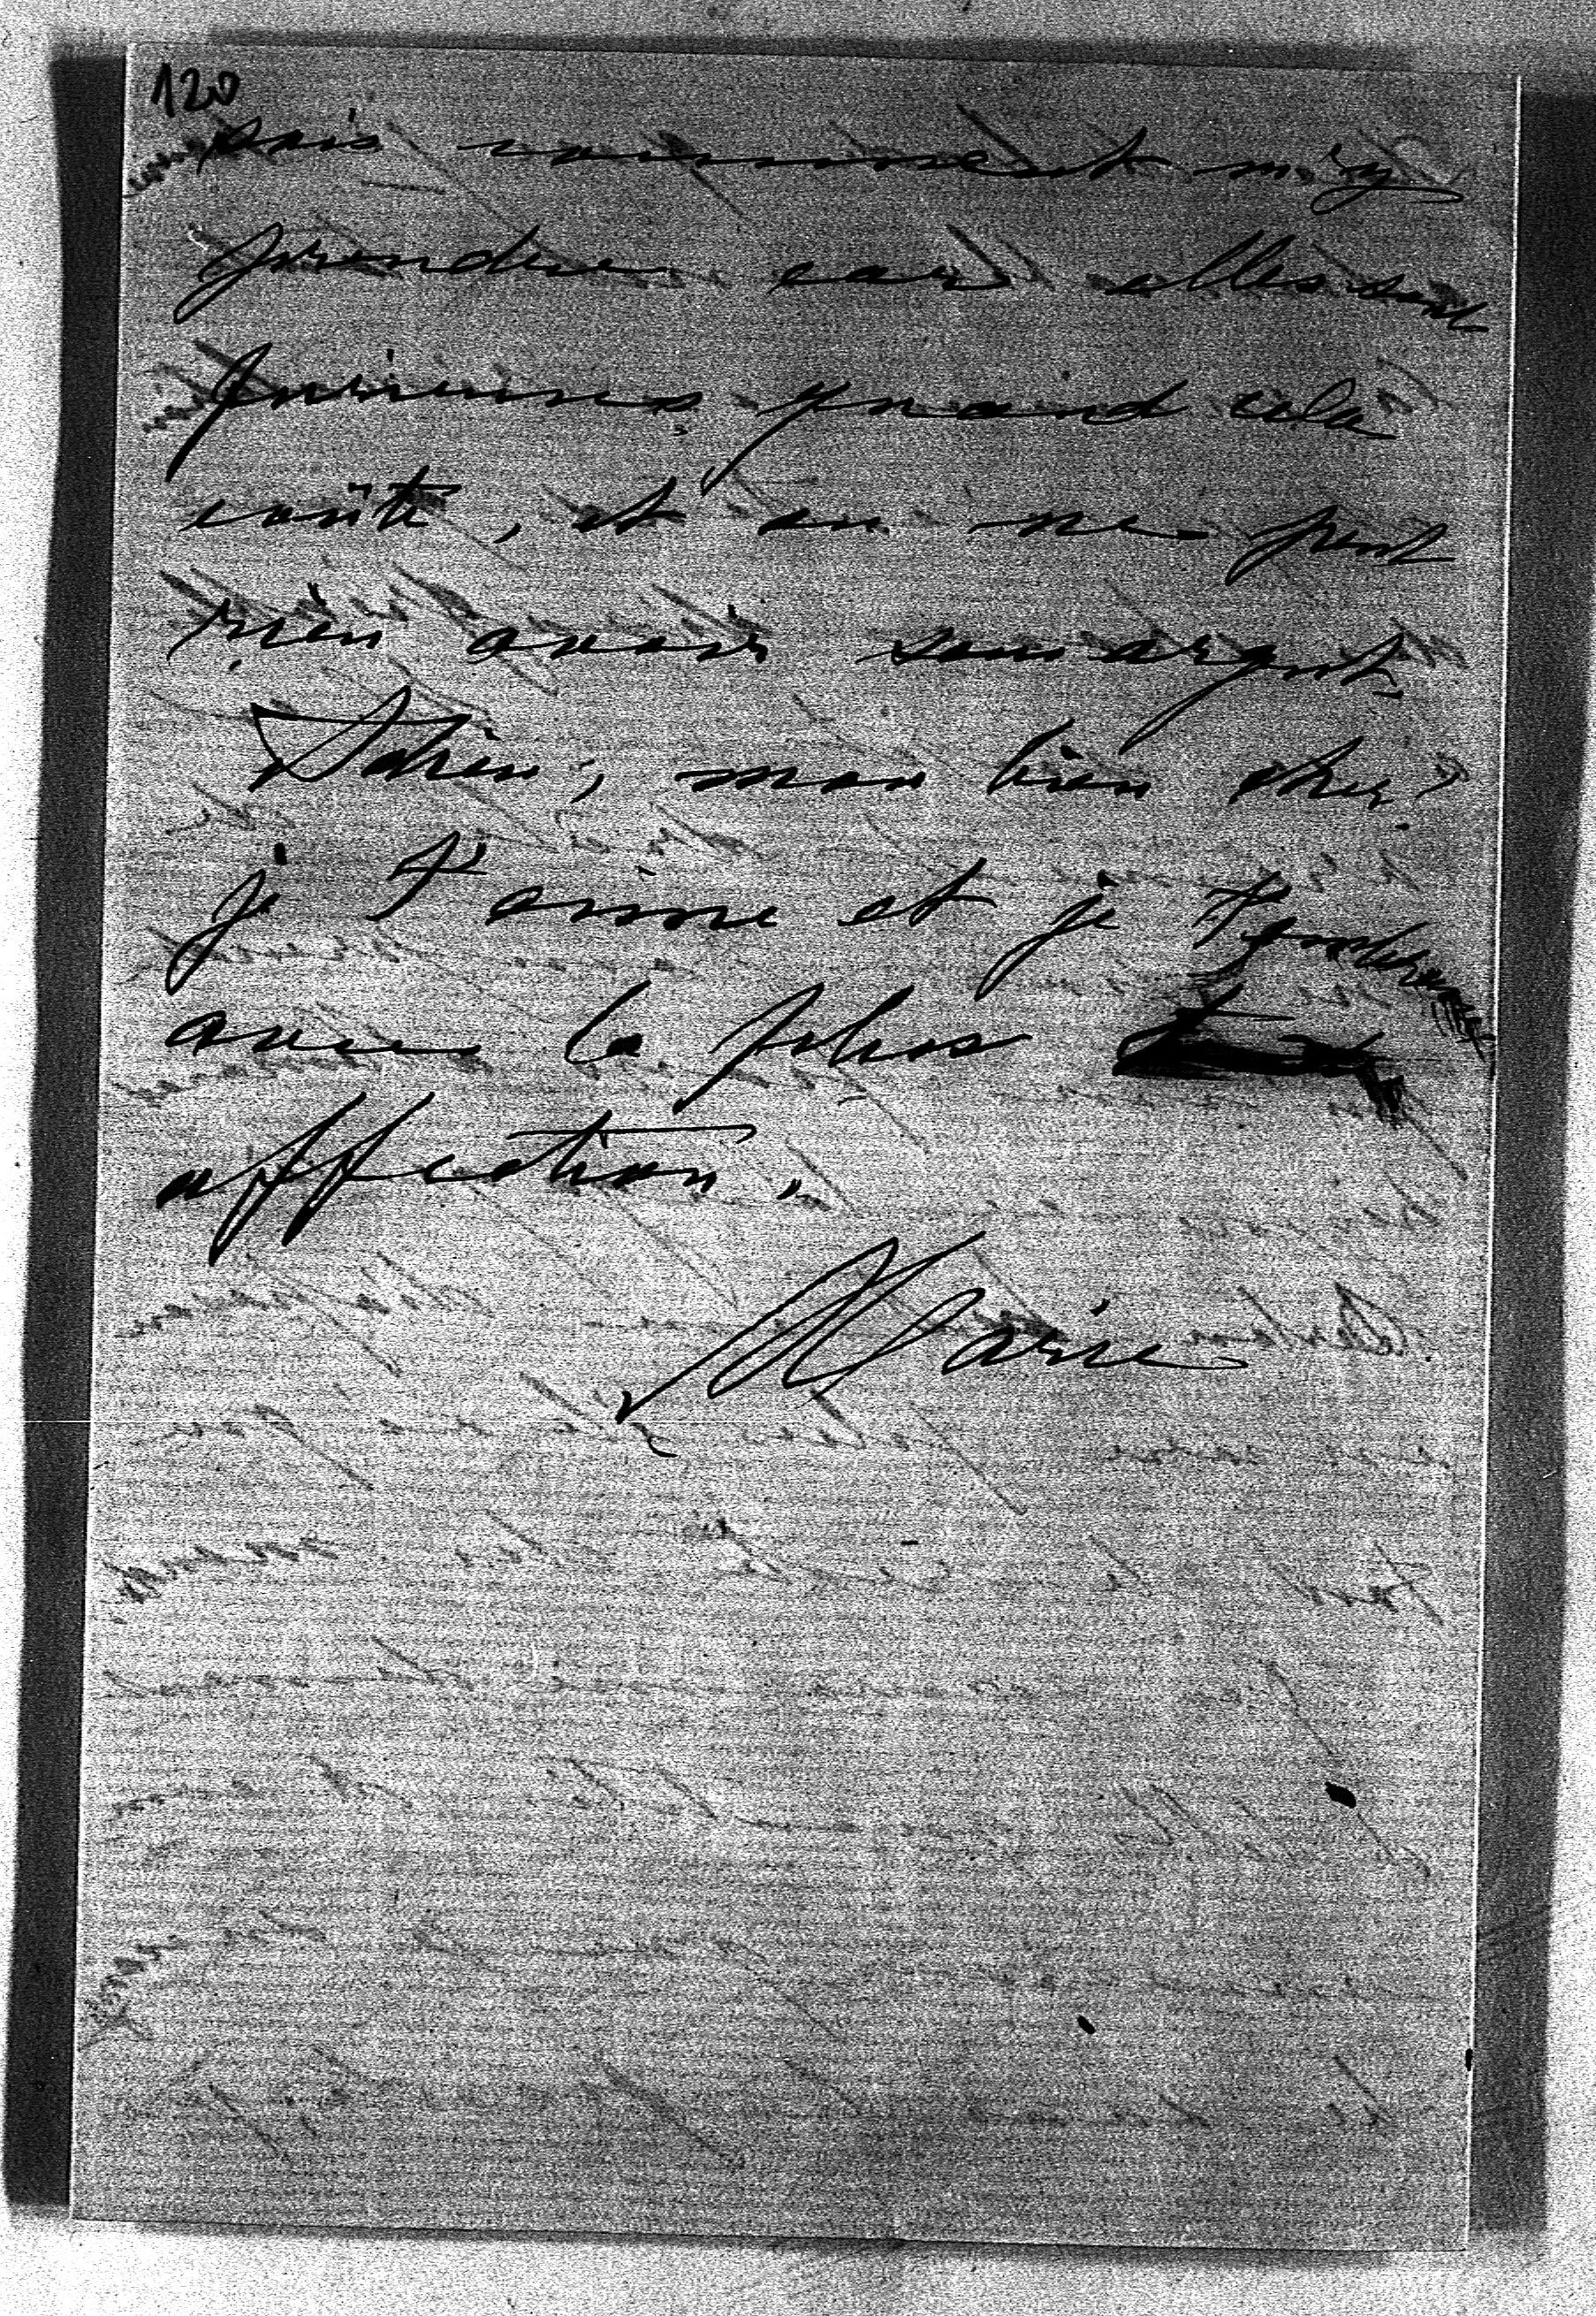 120
sais comment m'y
prendre car elles sont
furieuses quand cela
coûte, et on ne peut
rien avoir sans argent.
Adieu, mon bien cher
je t'aime et je t'embrasse
avec la plus
affection.
Marie